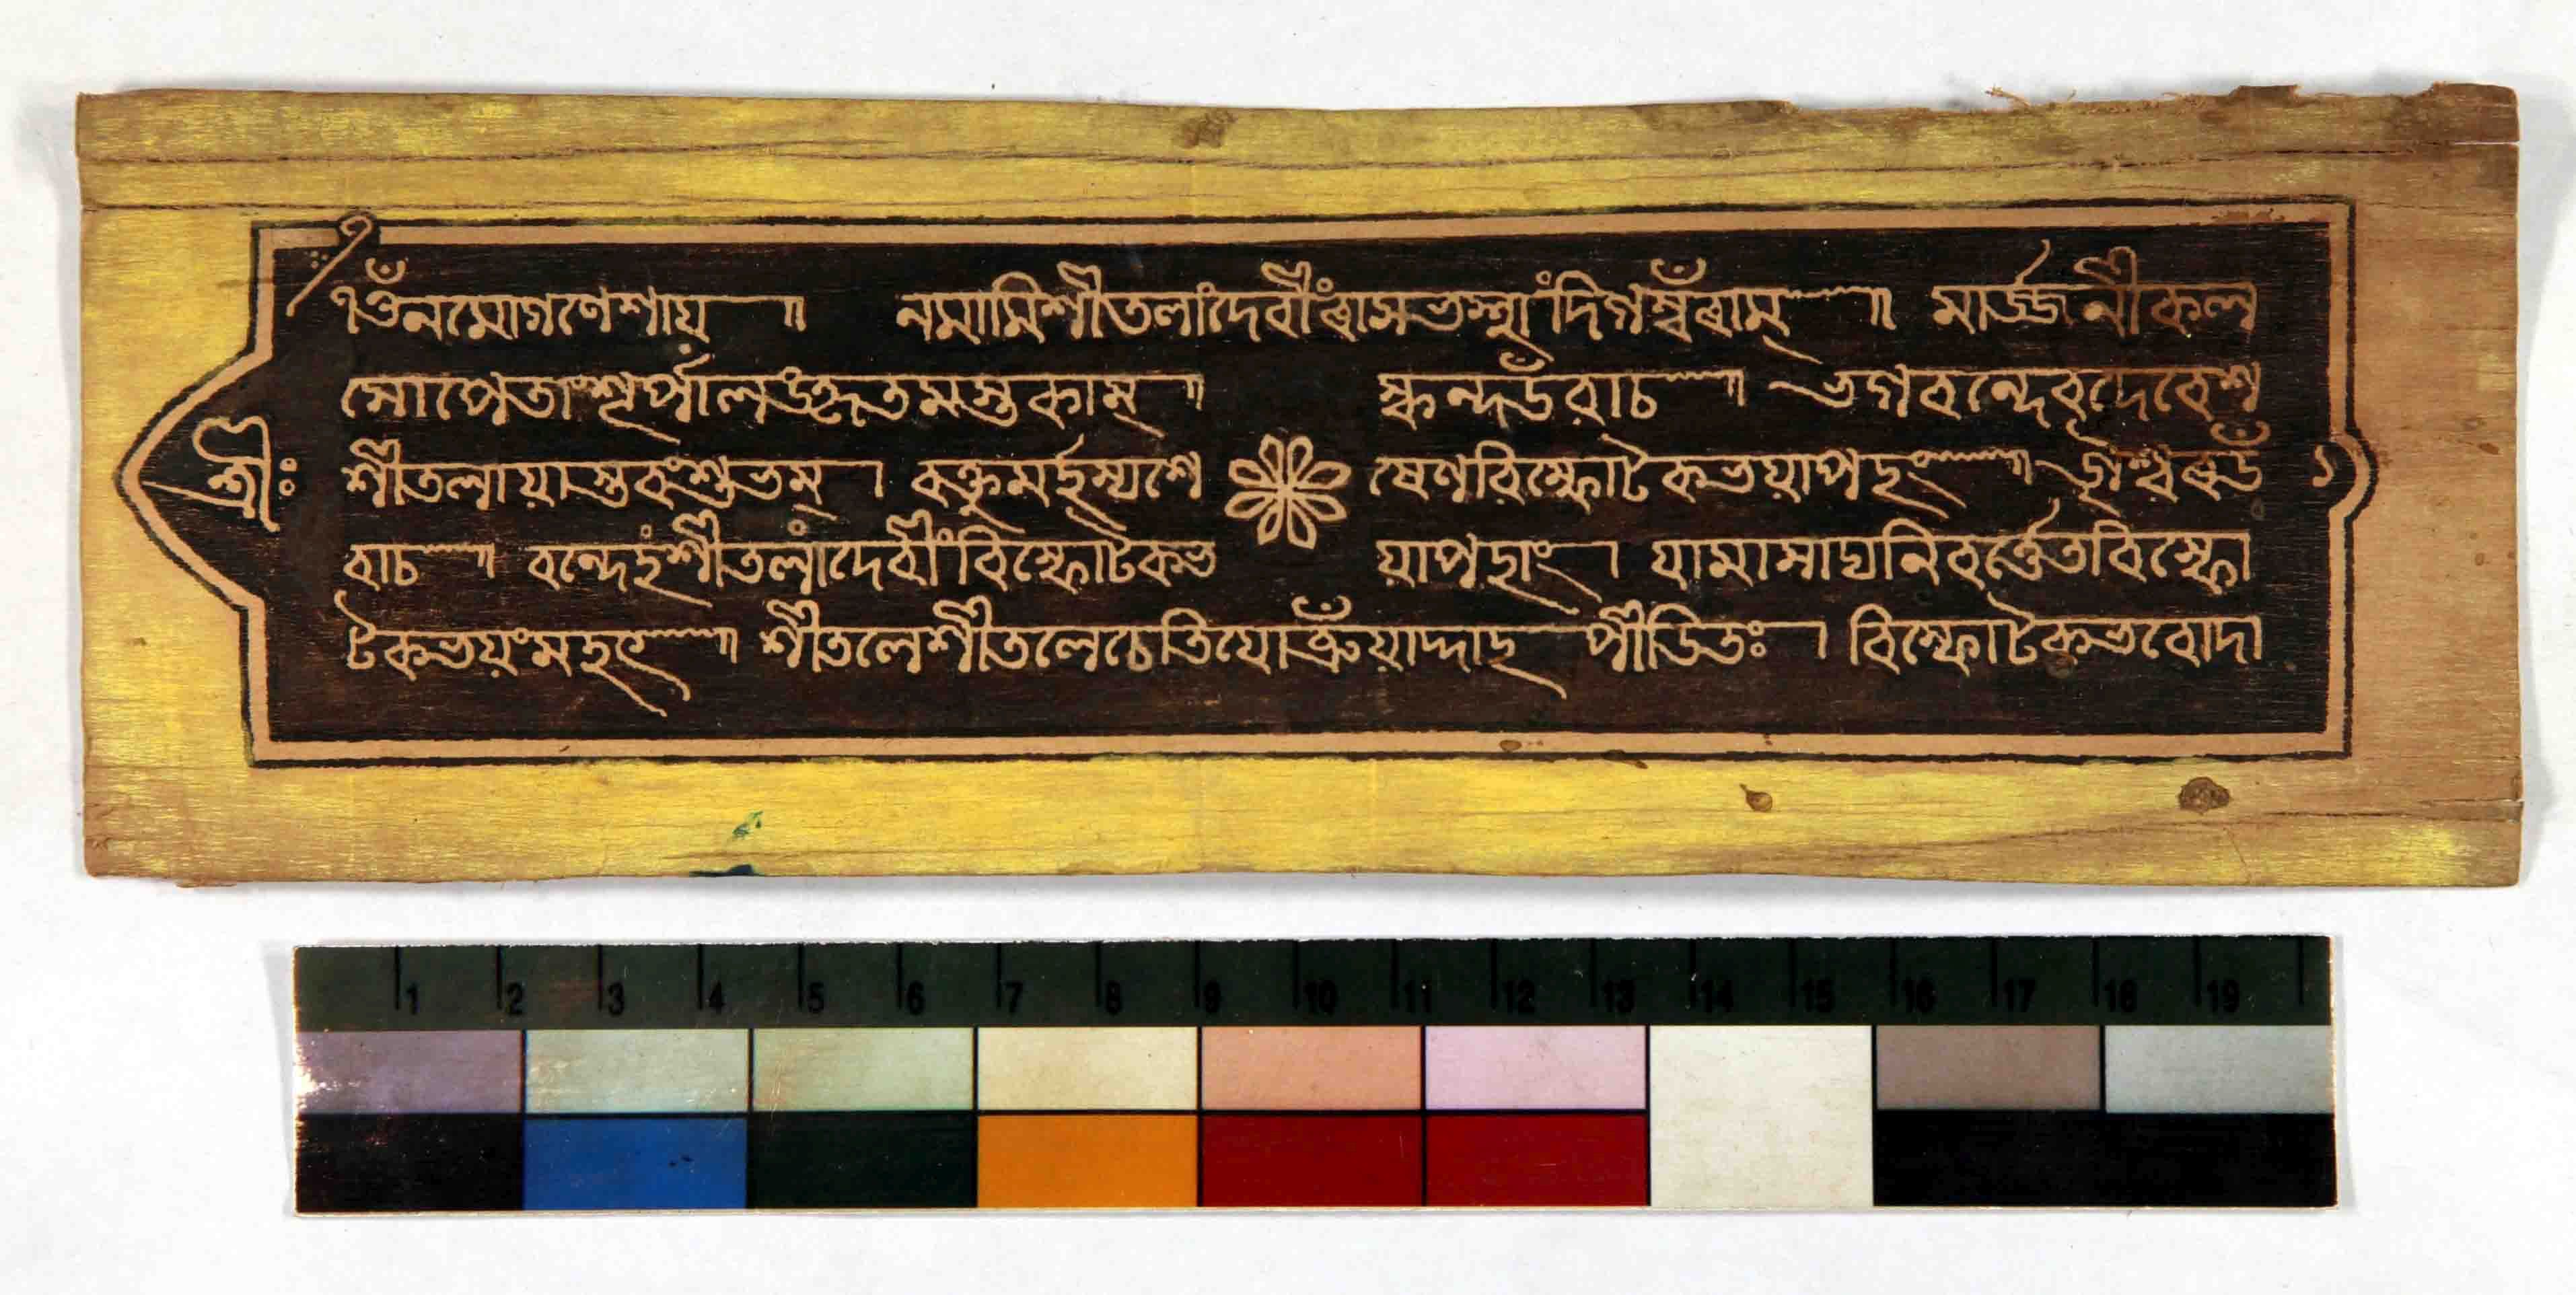 ওঁনমোগণেশায় ॥ নমামিশীতলাংদেবীংৰাসভস্থাংদিগম্বৰাম্ ॥ মার্জ্জনীকল
সোপেতাংশূর্পালঙ্কৃতমস্তকাম্ ॥ স্কন্দউবাচ ॥ ভগবন্দেবদেবেশ
শ্রীঃ শীতলায়াস্তবংশুভম্ । বক্তুমর্হস্যশে ষেণবিস্ফোটকভয়াপহং ॥ ঈশ্বৰউ ১
বাচ ॥ বন্দেহংশীতলাংদেবীংবিস্ফোটকভ য়াপহাং । যামাসাদ্যনিবর্ত্তেতবিস্ফো
টকভয়ংমহৎ ॥ শীতলেশীতলেচেতিযোব্রূয়াদ্দাহ পীডিতঃ । বিস্ফোটকভবোদা